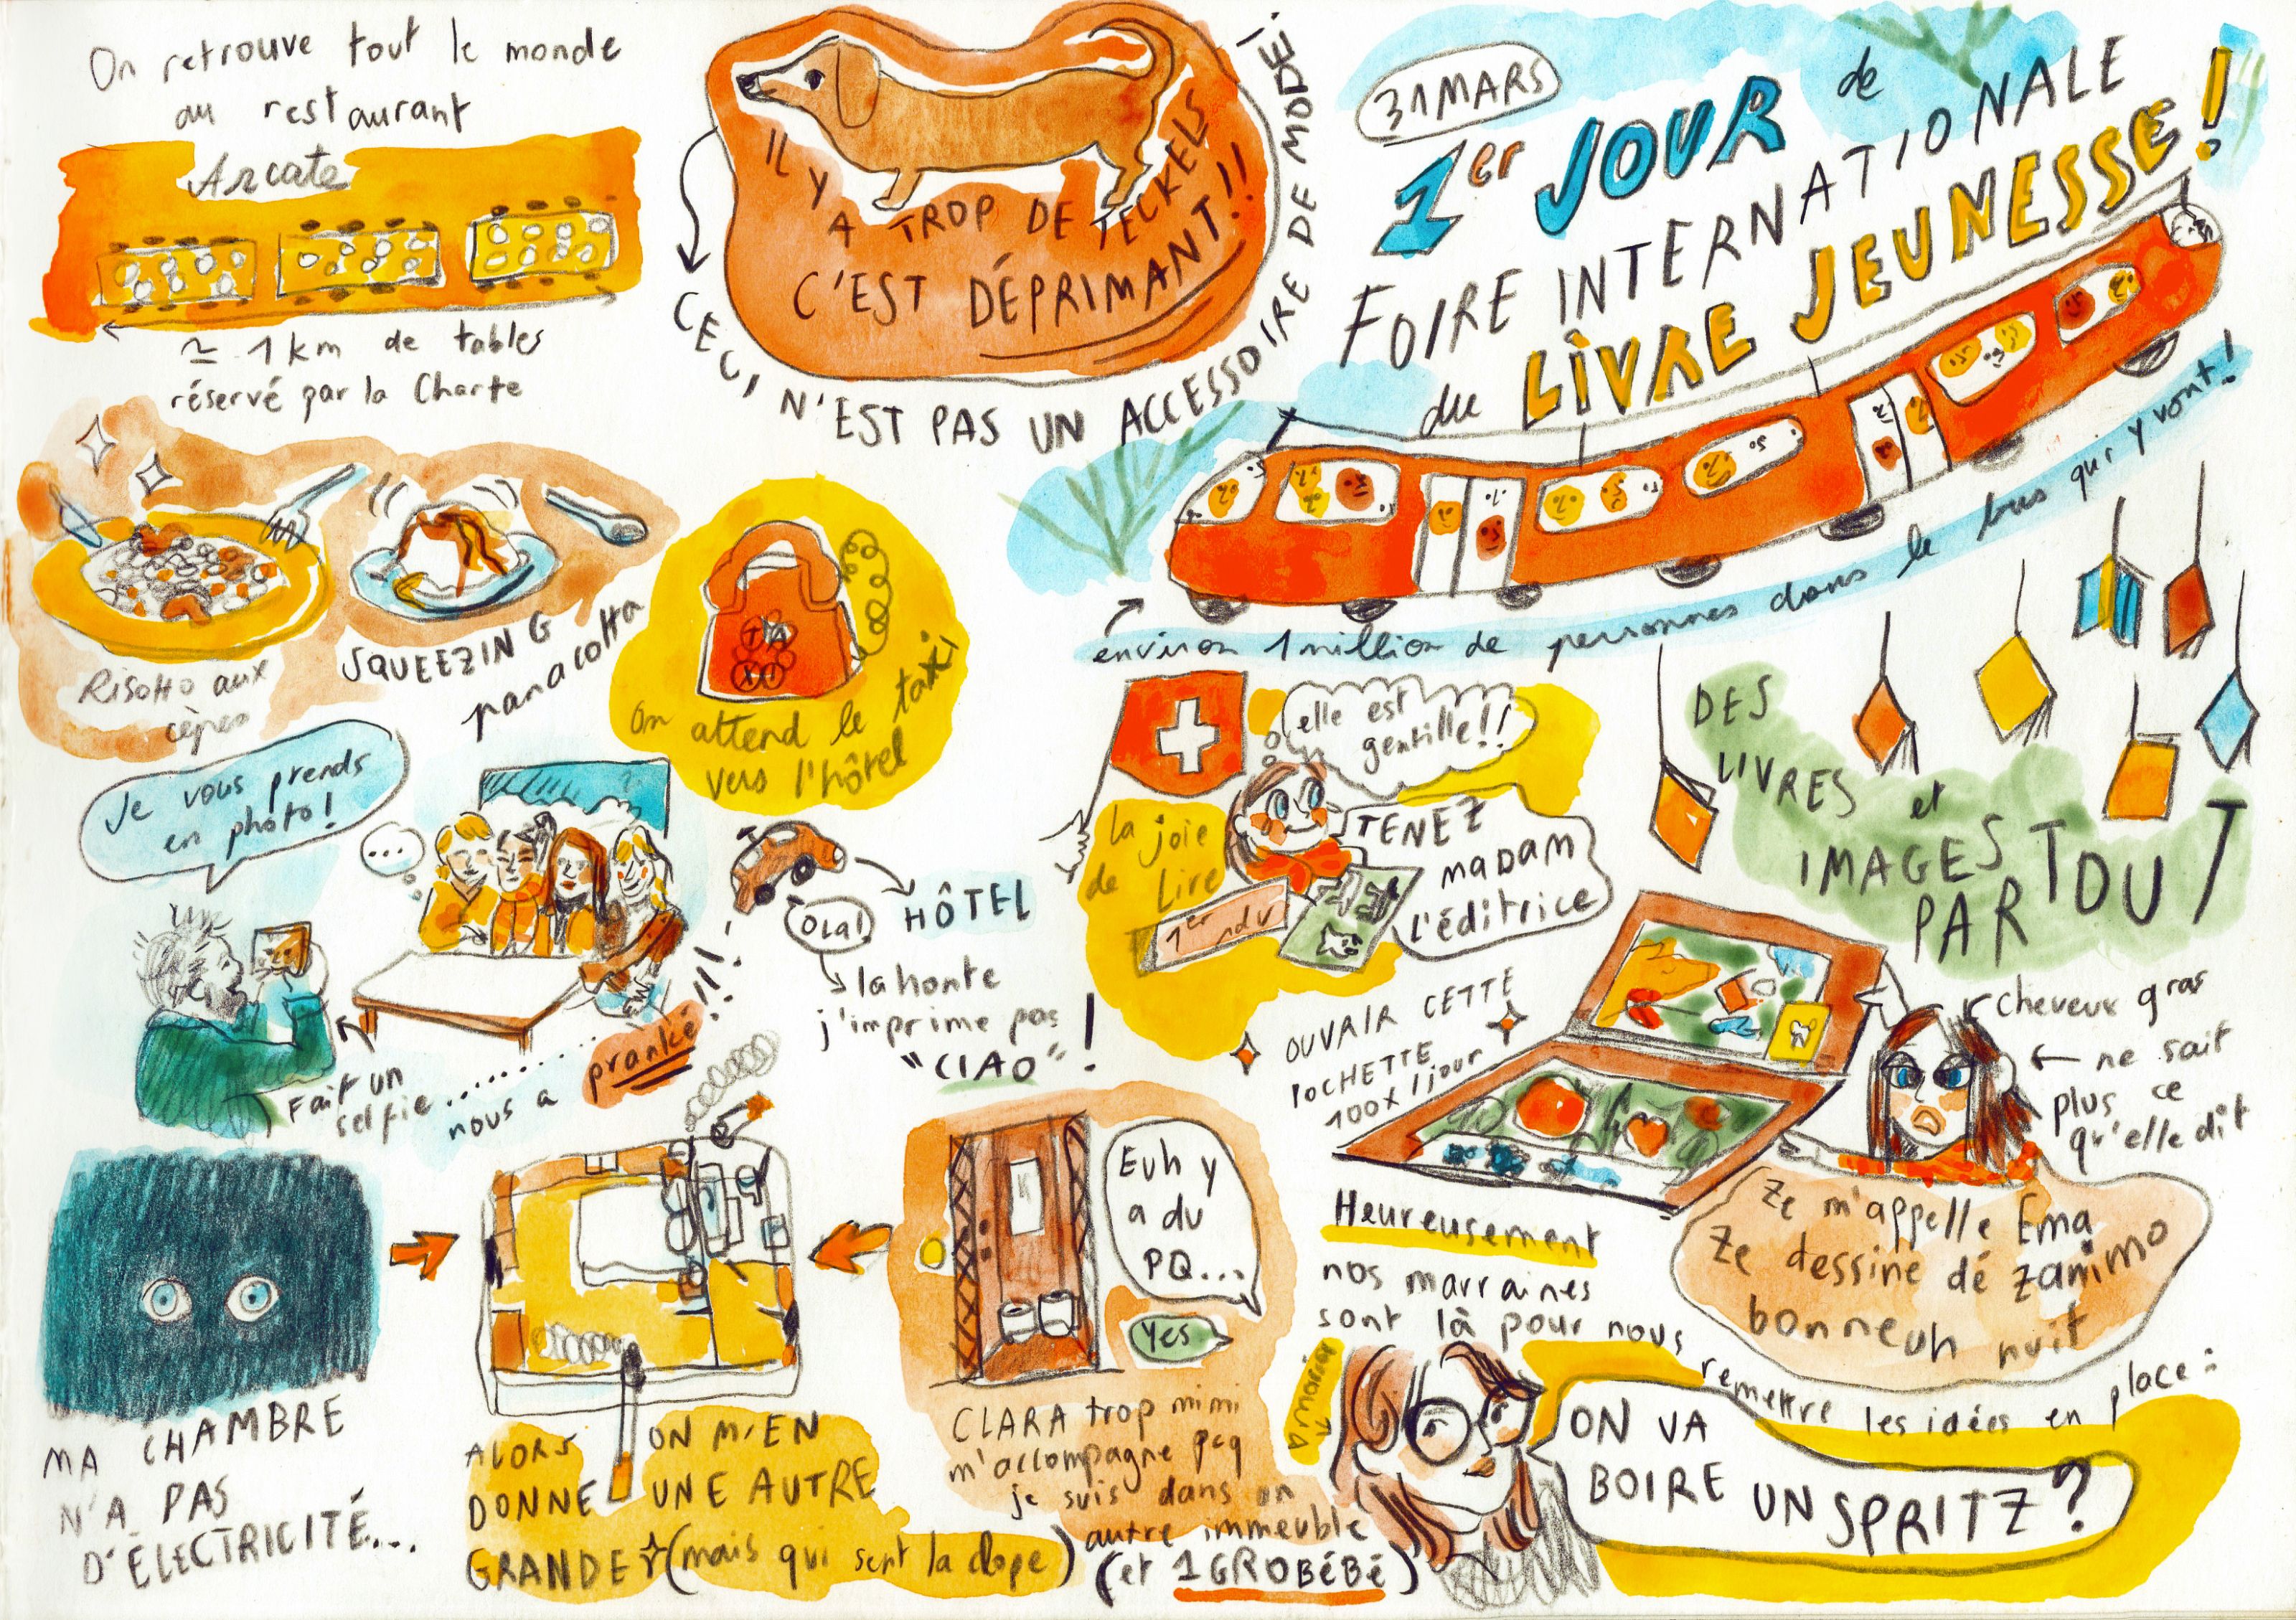 On retrouve tout le monde
au restaurant
Arcate
≃ 1 km de tables
réservé par la Charte
Risotto aux
cèpes
SQUEEZING
panacotta
IL Y
A TROP DE TECKELS
C'EST DÉPRIMANT!!
CECI N'EST PAS UN ACCESSOIRE DE MODE!
31 MARS
1er JOUR de
FOIRE INTERNATIONALE
du LIVRE JEUNESSE!
environ 1 million de personnes dans le bus qui y vont!
TA
XI
On attend le taxi
vers l'hôtel
Je vous prends
en photo!
...
Fait un
selfie..........
nous a pranké!!!
OLA!
HÔTEL
la honte
j'imprime pas
"CIAO"!
elle est
gentille!!
la joie
de lire
1er rdv
TENEZ
MADAM
l'éditrice
DES
LIVRES et
IMAGES
PARTOUT
OUVRIR CETTE
POCHETTE
100x / jour
cheveux gras
ne sait
plus ce
qu'elle dit
Ze m'appelle Ema
Ze dessine dé zanimo
bonneuh nuit
Heureusement
nos marraines
sont là pour nous
remettre les idées en place:
ON VA
BOIRE UN SPRITZ?
MA CHAMBRE
N'A PAS
D'ÉLECTRICITÉ...
ALORS ON M'EN
DONNE UNE AUTRE
GRANDE (mais qui sent la clope)
Euh y
a du
PQ...
Yes
CLARA trop mimi
m'accompagne pcq
je suis dans un
autre immeuble
(et 1 GROBÉBÉ)